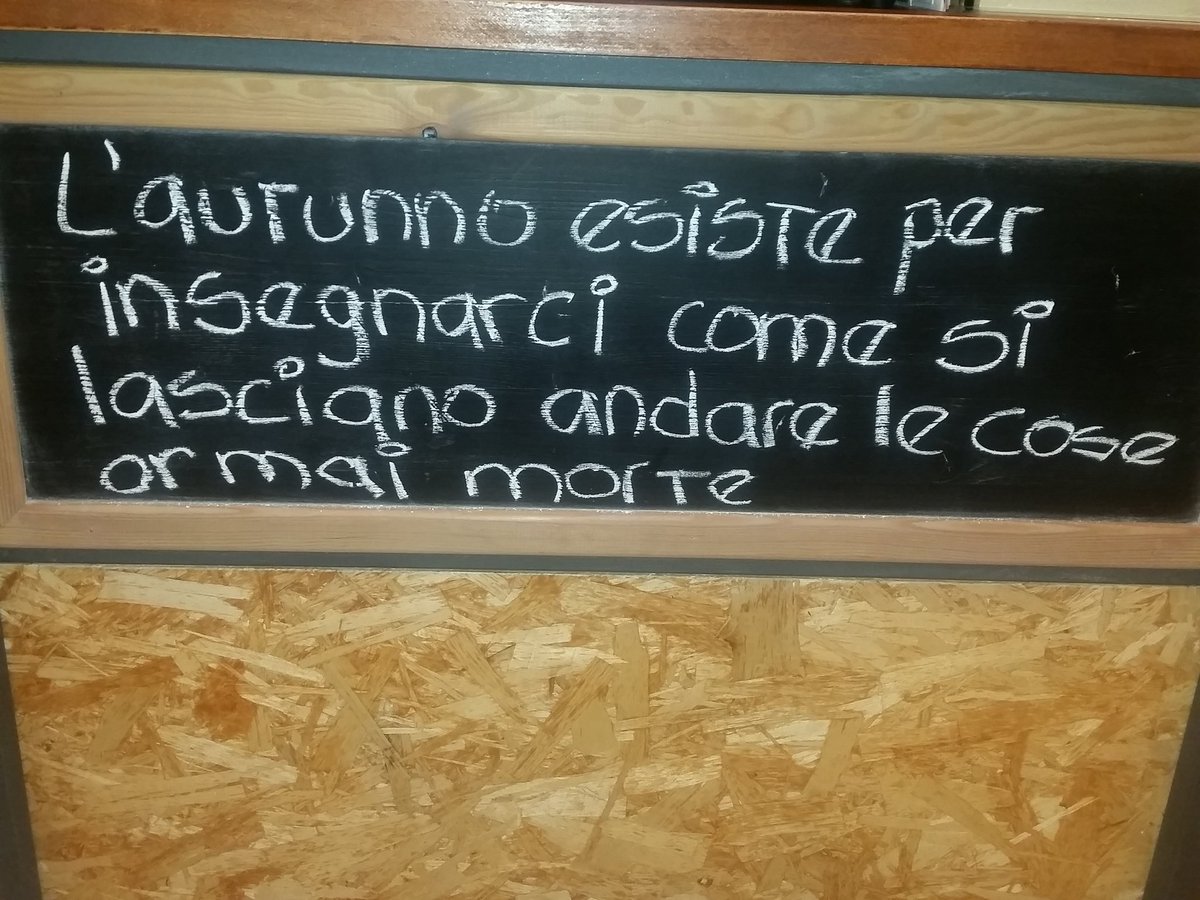 L'autunno esiste per
insegnarci come si
lasciano andare le cose
ormai morte